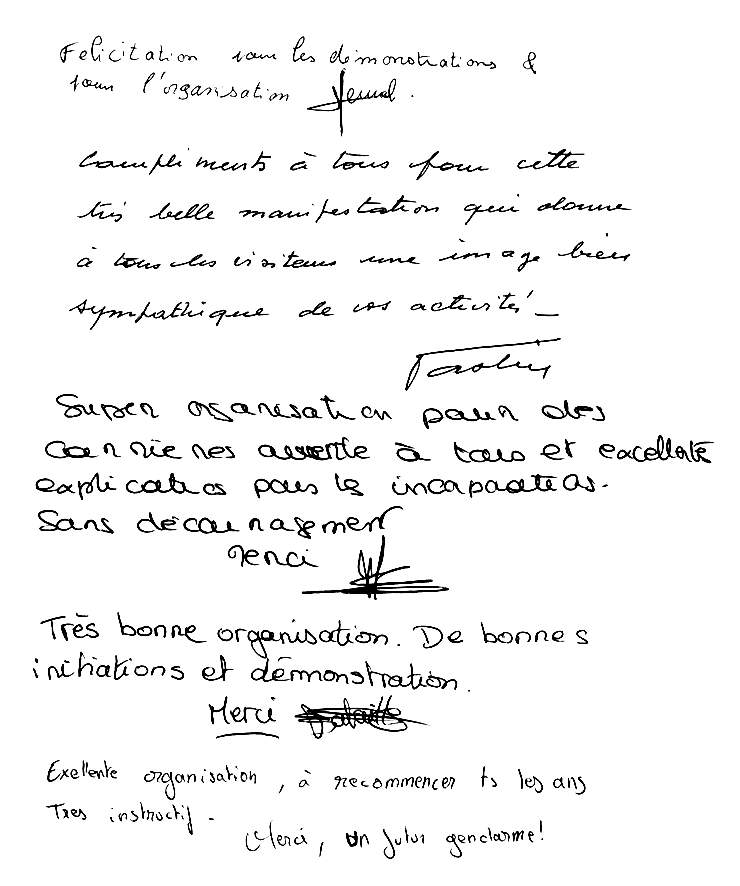 Felicitation pour les démonstrations &
pour l'organisation
Compliments à tous pour cette
très belle manifestation qui donne
à tous les visiteurs une image bien
sympathique de vos activités_
Super organisation pour des
carrieres ouverte à tous et
explication pour les
Sans découragement
Merci
Très bonne organisation. De bonnes
initiations et démonstration.
Merci
Exellente organisation, à recommencer ts les ans
Tres instructif.
Merci, un futur gendarme!